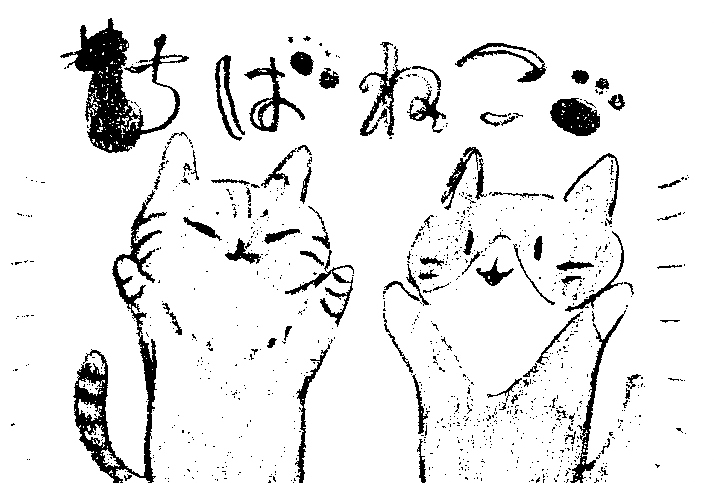 ちばねこ